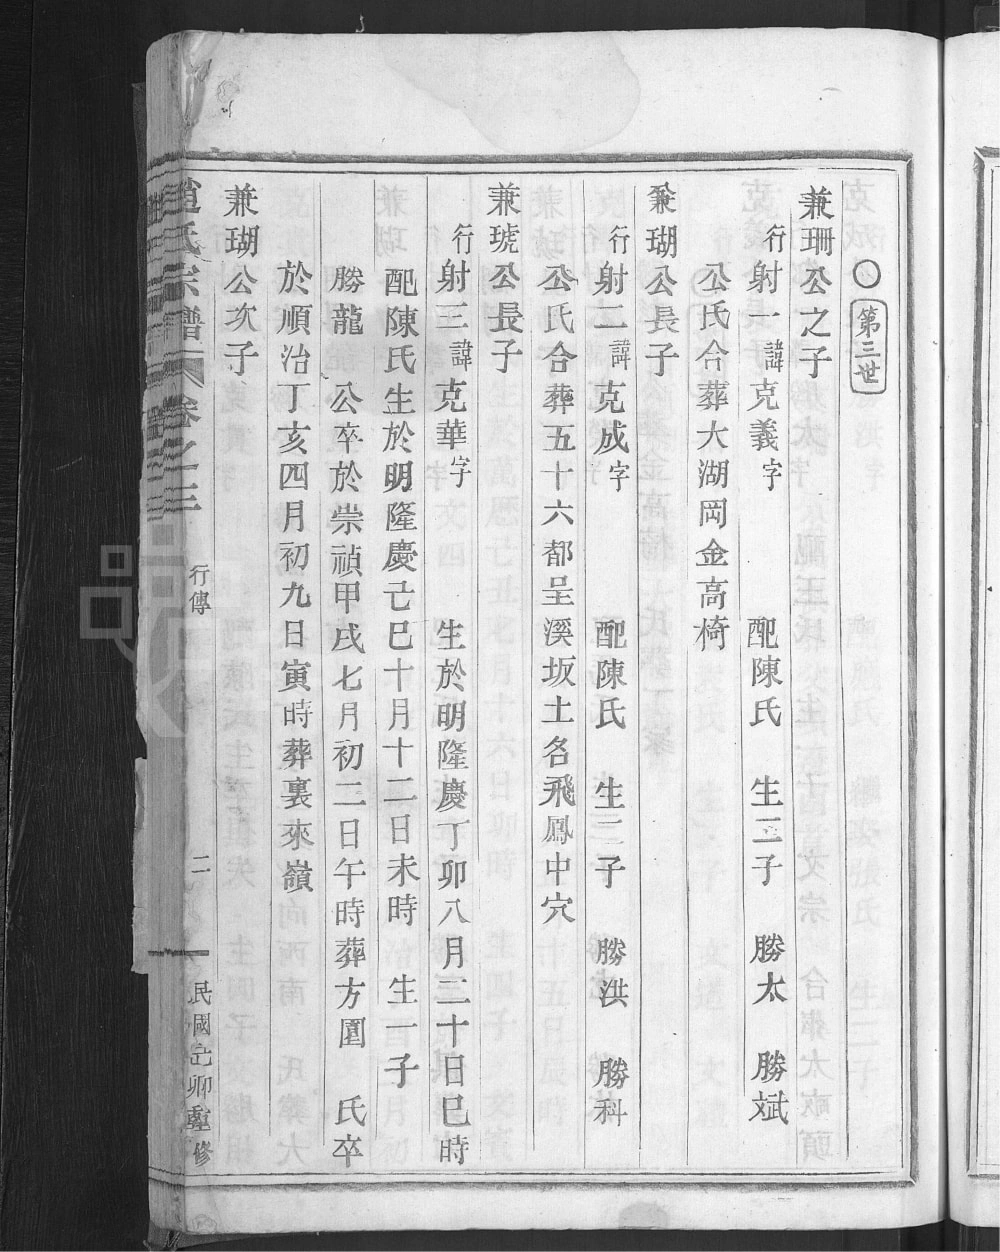 ○第三世
兼珊公之子
行射一諱克義字 配陳氏 生二子 勝太 勝斌
公氏合葬大湖岡金高椅
兼瑚公長子
行射二諱克成字 配陳氏 生二子 勝洪 勝科
公氏合葬五十六都呈溪坂土名飛鳳中穴
兼琥公長子
行射三諱克華字 生於明隆慶丁卯八月二十日巳時
配陳氏生於明隆慶己巳十月十二日未時 生一子
勝龍 公卒於崇禎甲戌七月初二日午時葬方園 氏卒
於順治丁亥四月初九日寅時葬裏來嶺
兼瑚公次子
趙氏宗譜 卷之三 行傳 二 民國己卯重修